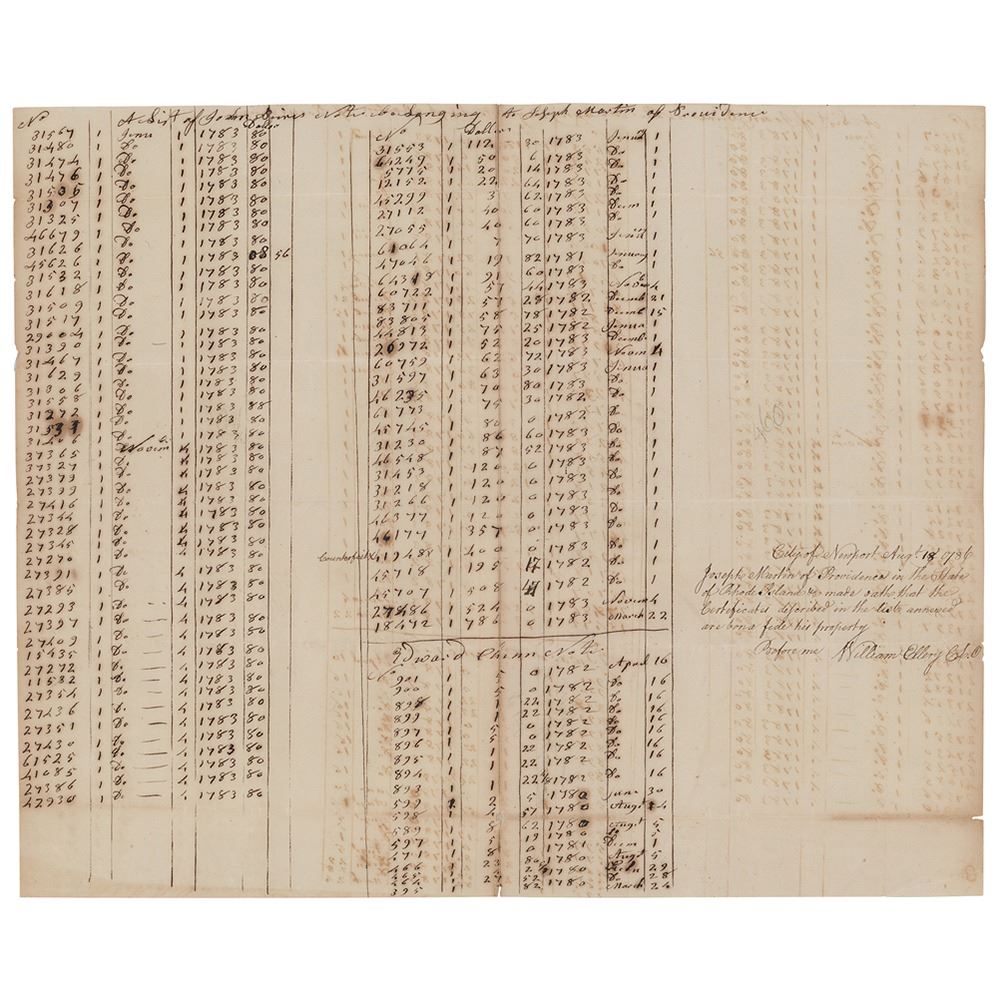 A List of John Peirces Note belonging to Joseph Martin of Providence
No Dollar
31567 1 Jenu 1 1783 80
31480 1 Do 1 1783 80
31474 1 Do 1 1783 80
31476 1 Do 1 1783 80
31535 1 Do 1 1783 80
31307 1 Do 1 1783 80
31325 1 Do 1 1783 80
46679 1 Do 1 1783 80
31626 1 Do 1 1783 80
45626 1 Do 1 1783 08 56
31532 1 Do 1 1783 80
31618 1 Do 1 1783 80
31509 1 Do 1 1783 80
31517 1 Do 1 1783 80
29004 1 Do 1 1783 80
31390 1 Do 1 1783 80
31467 1 Do 1 1783 80
31629 1 Do 1 1783 80
31306 1 Do 1 1783 80
31558 1 Do 1 1783 80
31272 1 Do 1 1783 88
1 Do 1 1783 80
31406 1 Do 1 1783 80
37365 1 Novem 4 1783 80
37327 1 Do 4 1783 80
27379 1 Do 4 1783 80
27399 1 Do 4 1783 80
27416 1 Do 4 1783 80
27344 1 Do 4 1783 80
27328 1 Do 4 1783 80
27345 1 Do 4 1783 80
27270 1 Do 4 1783 80
27391 1 Do 4 1783 80
27385 1 Do 4 1783 80
27293 1 Do 4 1783 80
27397 1 Do 4 1783 80
27409 1 Do 4 1783 80
15435 1 Do 4 1783 80
27272 1 Do 4 1783 80
11532 1 Do 4 1783 80
27354 1 Do 4 1783 80
27436 1 Do 4 1783 80
27351 1 Do 4 1783 80
27430 1 Do 4 1783 80
61525 1 Do 4 1783 80
41085 1 Do 4 1783 80
27386 1 Do 4 1783 80
42930 1 Do 4 1783 80
No Dollars
31553 1 112 30 1783 Jenud 1
64249 1 50 6 1783 Do 1
5775 1 20 14 1783 Do 1
12152 1 22 64 1783 Do 1
45299 1 3 62 1783 Do 1
27112 1 40 60 1783 Decm 1
27055 1 40 60 1783 Do 1
61064 1 7 70 1783 Jenu 1
47046 1 19 82 1781 Jenuary 1
64318 1 91 60 1783 Do 1
60722 1 57 44 1783 Novem 4
83711 1 57 28 1782 Decemb 21
83805 1 58 78 1782 Decemb 15
44813 1 75 25 1782 Jenua 1
20972 1 52 20 1783 Decemb 1
60759 1 62 72 1783 Novem 4
31597 1 63 30 1783 Jenua 1
46235 1 70 80 1783 Do 1
61773 1 75 30 1782 Do 1
45745 1 80 0 1782 Do 1
31230 1 86 60 1783 Do 1
46548 1 87 52 1783 Do 1
31453 1 120 0 1783 Do 1
31218 1 120 0 1783 Do 1
31266 1 120 0 1783 Do 1
46377 1 120 0 1783 Do 1
46177 1 357 0 1783 Do 1
Counterfeit X 41948 1 400 0 1783 Do 1
45718 1 195 17 1782 Do 1
45707 1 508 1782 Do 1
27486 1 524 0 1783 Novem 4
18472 1 786 0 1783 March 22
Edward Chinn Note
No
901 1 5 0 1782 April 16
900 1 5 0 1782 Do 16
898 1 1 22 1782 Do 16
899 1 1 22 1782 Do 16
897 1 5 0 1782 Do 16
896 1 5 0 1782 Do 16
895 1 1 22 1782 Do 16
894 1 1 22 1782
893 1 1 22 1782 Do 16
599 2 5 1780 June 30
598 1 4 57 1780 Augt 4
589 1 8 62 1780 Augt 5
597 1 5 19 1780 Do 5
471 1 8 0 1781 Decm 1
466 1 23 80 1780 Augt 5
465 1 2 1780 29
395 1 27 52 1780 Do 28
82 1780 March 24
400
City of Newport Augt. 18 1786
Joseph Martin of Providence in the State
of Rhode Island &c. made oath that the
Certificates discribed in the lists annexed
are bona fide his property
Before me William Ellery C.L.O